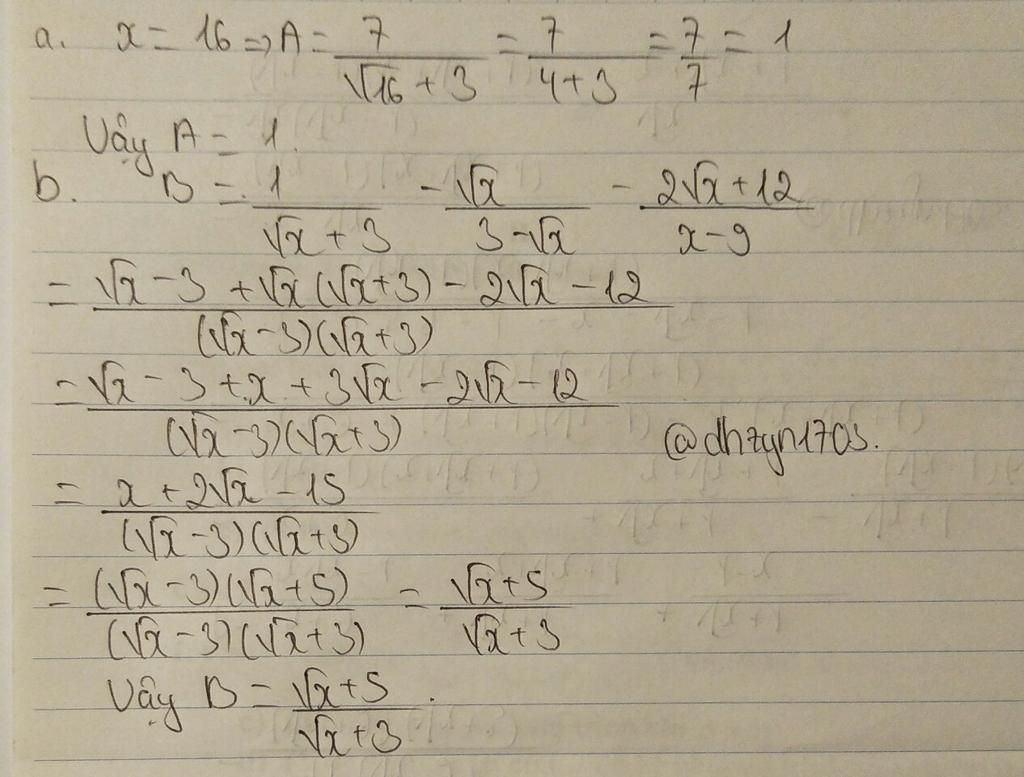 a. x = 16 => A = 7/(√16 + 3) = 7/(4+3) = 7/7 = 1
Vậy A = 1.
b. B = 1/(√x + 3) - √x/(3-√x) - (2√x + 12)/(x-9)
= (√x - 3 + √x(√x+3) - 2√x - 12)/((√x-3)(√x+3))
= (√x - 3 + x + 3√x - 2√x - 12)/((√x-3)(√x+3))
@dhzyn1703.
= (x + 2√x - 15)/((√x-3)(√x+3))
= ((√x-3)(√x+5))/((√x-3)(√x+3)) = (√x+5)/(√x+3)
Vậy B = (√x+5)/(√x+3).